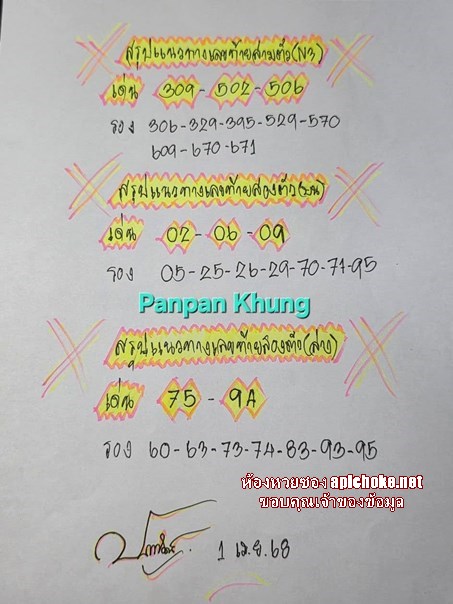 สรุปแนวทางเลขท้ายสามตัว(N3)
เด่น 309-502-506
รอง 306-329-395-529-570
609-670-671
สรุปแนวทางเลขท้ายสองตัว(บน)
เด่น 02-06-09
รอง 05-25-26-29-70-71-95
Panpan Khung
สรุปแนวทางเลขท้ายสองตัว(ล่าง)
เด่น 75-94
รอง 60-63-73-74-83-93-95
ห้องหวยซอง apichoke.net
ขอบคุณเจ้าของข้อมุล
1 เม.ย 68